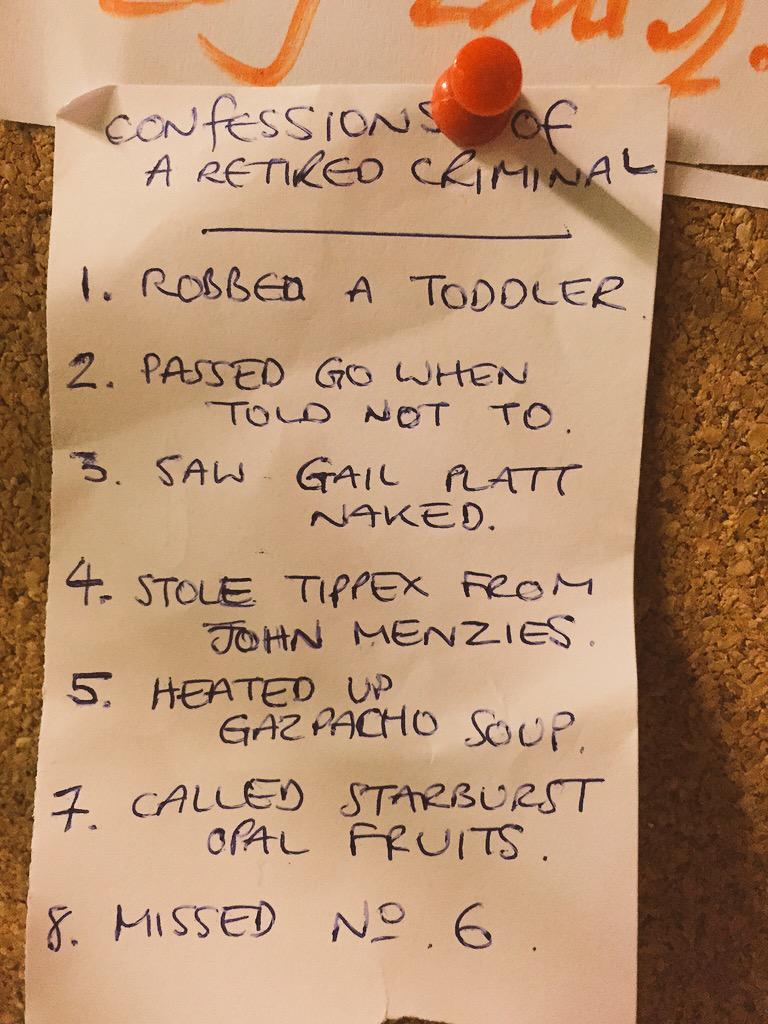 CONFESSIONS OF
A RETIRED CRIMINAL
1. ROBBED A TODDLER.
2. PASSED GO WHEN
TOLD NOT TO.
3. SAW GAIL PLATT
NAKED.
4. STOLE TIPPEX FROM
JOHN MENZIES.
5. HEATED UP
GAZPACHO SOUP.
7. CALLED STARBURST
OPAL FRUITS.
8. MISSED Nº. 6.